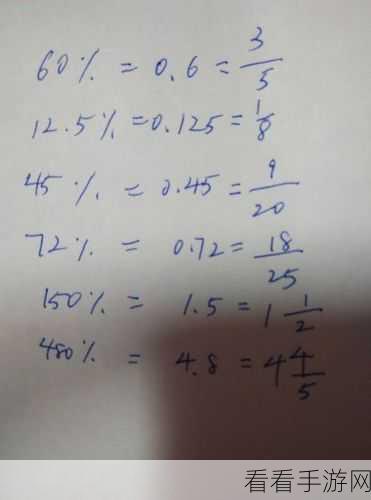 60% = 0.6 = 3/5
12.5% = 0.125 = 1/8
45% = 0.45 = 9/20
72% = 0.72 = 18/25
150% = 1.5 = 1 1/2
480% = 4.8 = 4 4/5
看看手游网